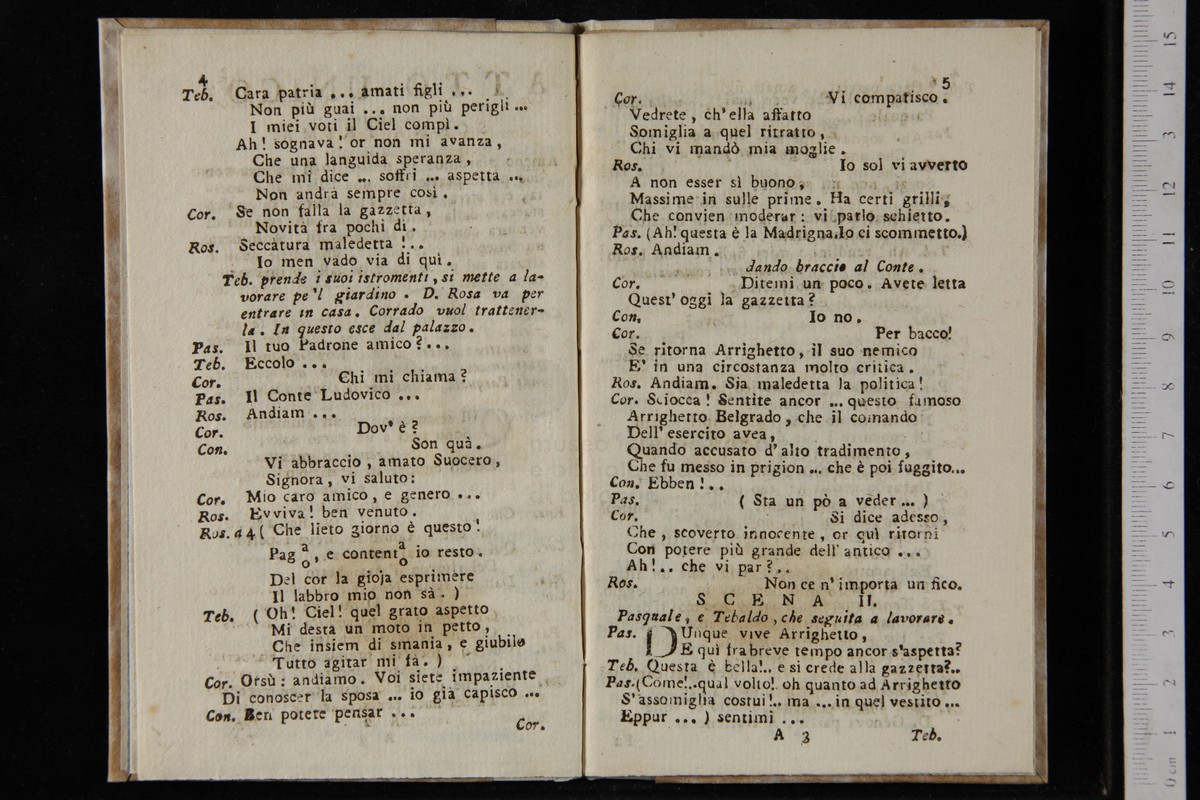 4
Teb. Cara patria ... amati figli ...
Non più guai ... non più perigli ...
I miei voti il Ciel compì.
Ah! sognava! or non mi avanza,
Che una languida speranza,
Che mi dice ... soffri ... aspetta ...
Non andrà sempre così.
Cor. Se non falla la gazzetta,
Novità fra pochi dì.
Ros. Seccatura maledetta!..
Io men vado via di quì.
Teb. prende i suoi istromenti, si mette a la-
vorare pe'l giardino. D. Rosa va per
entrare in casa. Corrado vuol trattener-
la. In questo esce dal palazzo.
Pas. Il tuo Padrone amico?...
Teb. Eccolo ...
Cor. Chi mi chiama?
Pas. Il Conte Ludovico ...
Ros. Andiam ...
Cor. Dov'è?
Con. Son quà.
Vi abbraccio, amato Suocero,
Signora, vi saluto:
Cor. Mio caro amico, e genero ...
Ros. Evviva! ben venuto.
Ros. a 4 ( Che lieto giorno è questo!
Pag a/o, e content a/o io resto.
Del cor la gioja esprimere
Il labbro mio non sà. )
Teb. ( Oh! Ciel! quel grato aspetto
Mi desta un moto in petto,
Che insiem di smania, e giubilo
Tutto agitar mi fa. )
Cor. Orsù: andiamo. Voi siete impaziente
Di conoscer la sposa ... io già capisco ...
Con. Ben potete pensar ...
Cor.
5
Cor. Vi compatisco.
Vedrete, ch'ella affatto
Somiglia a quel ritratto,
Chi vi mandò mia moglie.
Ros. Io sol vi avverto
A non esser sì buono,
Massime in sulle prime. Ha certi grilli,
Che convien moderar: vi parlo schietto.
Pas. (Ah! questa è la Madrigna. Io ci scommetto.)
Ros. Andiam.
dando braccio al Conte.
Cor. Ditemi un poco. Avete letta
Quest'oggi la gazzetta?
Con. Io no.
Cor. Per bacco!
Se ritorna Arrighetto, il suo nemico
E' in una circostanza molto critica.
Ros. Andiam. Sia maledetta la politica!
Cor. Sciocca! Sentite ancor ... questo famoso
Arrighetto Belgrado, che il comando
Dell'esercito avea,
Quando accusato d'alto tradimento,
Che fu messo in prigion ... che è poi fuggito...
Con. Ebben!..
Pas. ( Sta un pò a veder ... )
Cor. Si dice adesso,
Che, scoverto innocente, or quì ritorni
Con potere più grande dell'antico ...
Ah!.. che vi par?..
Ros. Non ce n'importa un fico.
SCENA II.
Pasquale, e Tebaldo, che seguita a lavorare.
Pas. DUnque vive Arrighetto,
E quì fra breve tempo ancor s'aspetta?
Teb. Questa è bella!.. e si crede alla gazzetta?..
Pas. (Come!.. qual volto!. oh quanto ad Arrighetto
S'assomiglia costui!.. ma ... in quel vestito ...
Eppur ... ) sentimi ...
A 3 Teb.
0 cm 1 2 3 4 5 6 7 8 9 10 11 12 13 14 15